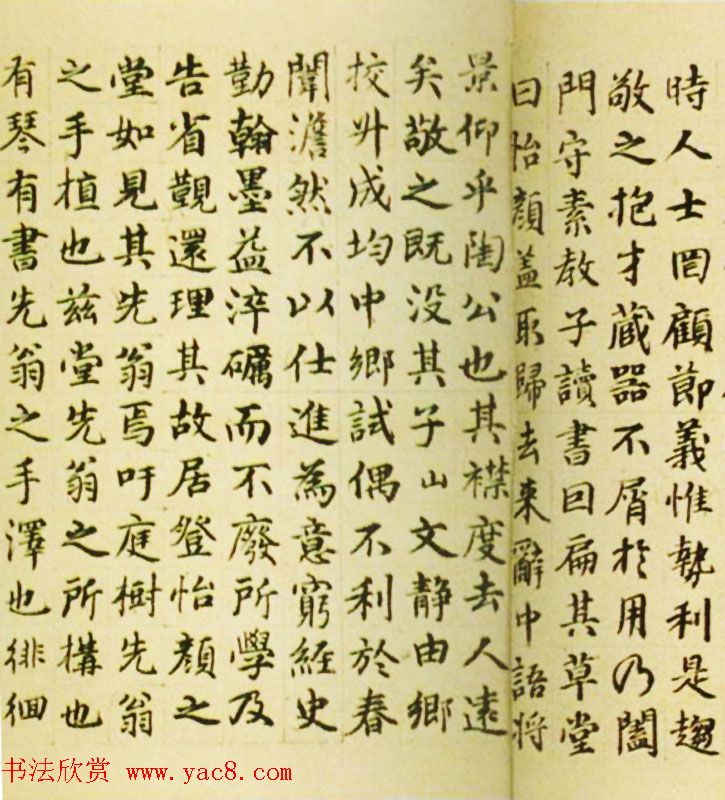 時人士罔顧節義惟勢利是趨
敬之抱才蔵器不屑於用乃闔
門守素教子讀書回扁其草堂
曰怡顔盖取歸去来辭中語将
景仰乎陶公也其襟度去人遠
矣敬之既没其子山文静由鄉
挍升成均中鄉試偶不利於春
聞澹然不以仕進為意窮経史
勤翰墨益淬礪而不廢所學及
告省覲還理其故居登怡顔之
堂如見其先翁焉吁庭樹先翁
之手植也兹堂先翁之所構也
有琴有書先翁之手澤也徘徊
书法欣赏 www.yac8.com